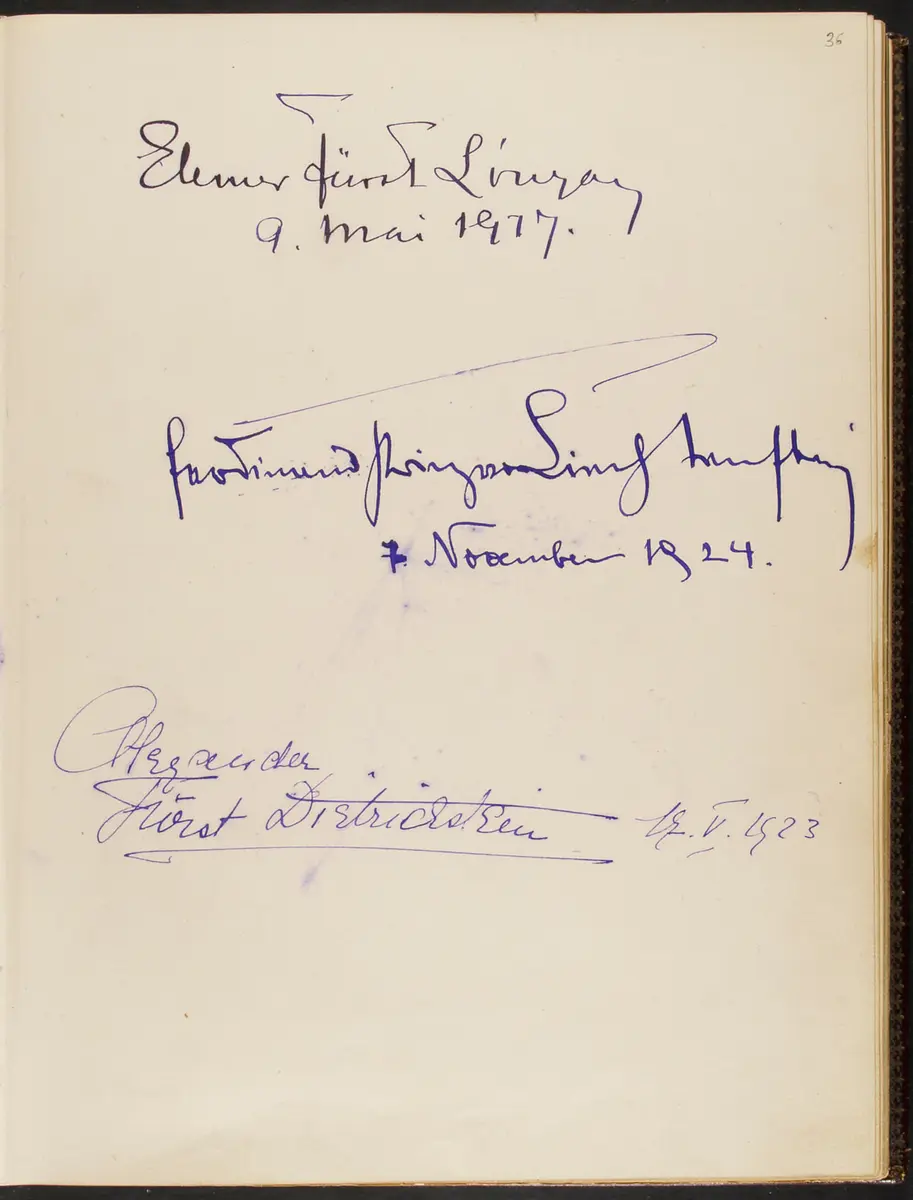 36
Elemer Fürst Lónyay
9. Mai 1917.
Ferdinand Prinz von Liechtenstein
7. November 1924.
Alexander
Fürst Dietrichstein 17. V. 1923